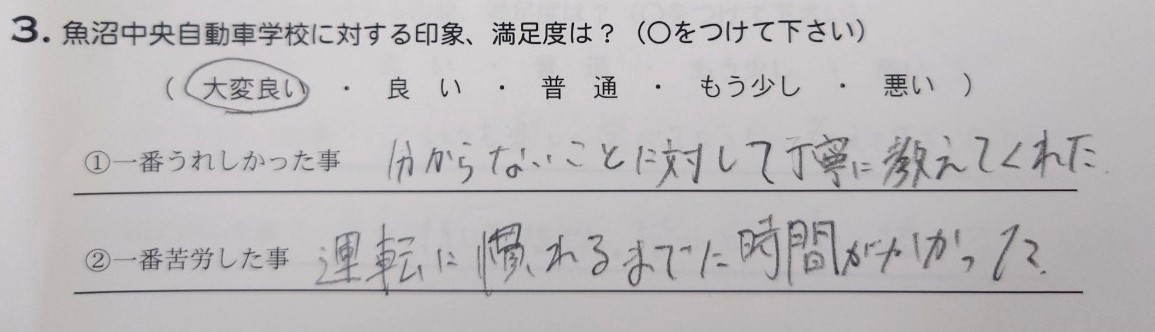 3. 魚沼中央自動車学校に対する印象、満足度は？（○をつけて下さい）
（ 大変良い ・ 良い ・ 普通 ・ もう少し ・ 悪い ）
①一番うれしかった事 分からないことに対して丁寧に教えてくれた.
②一番苦労した事 運転に慣れるまでに時間がかかった.